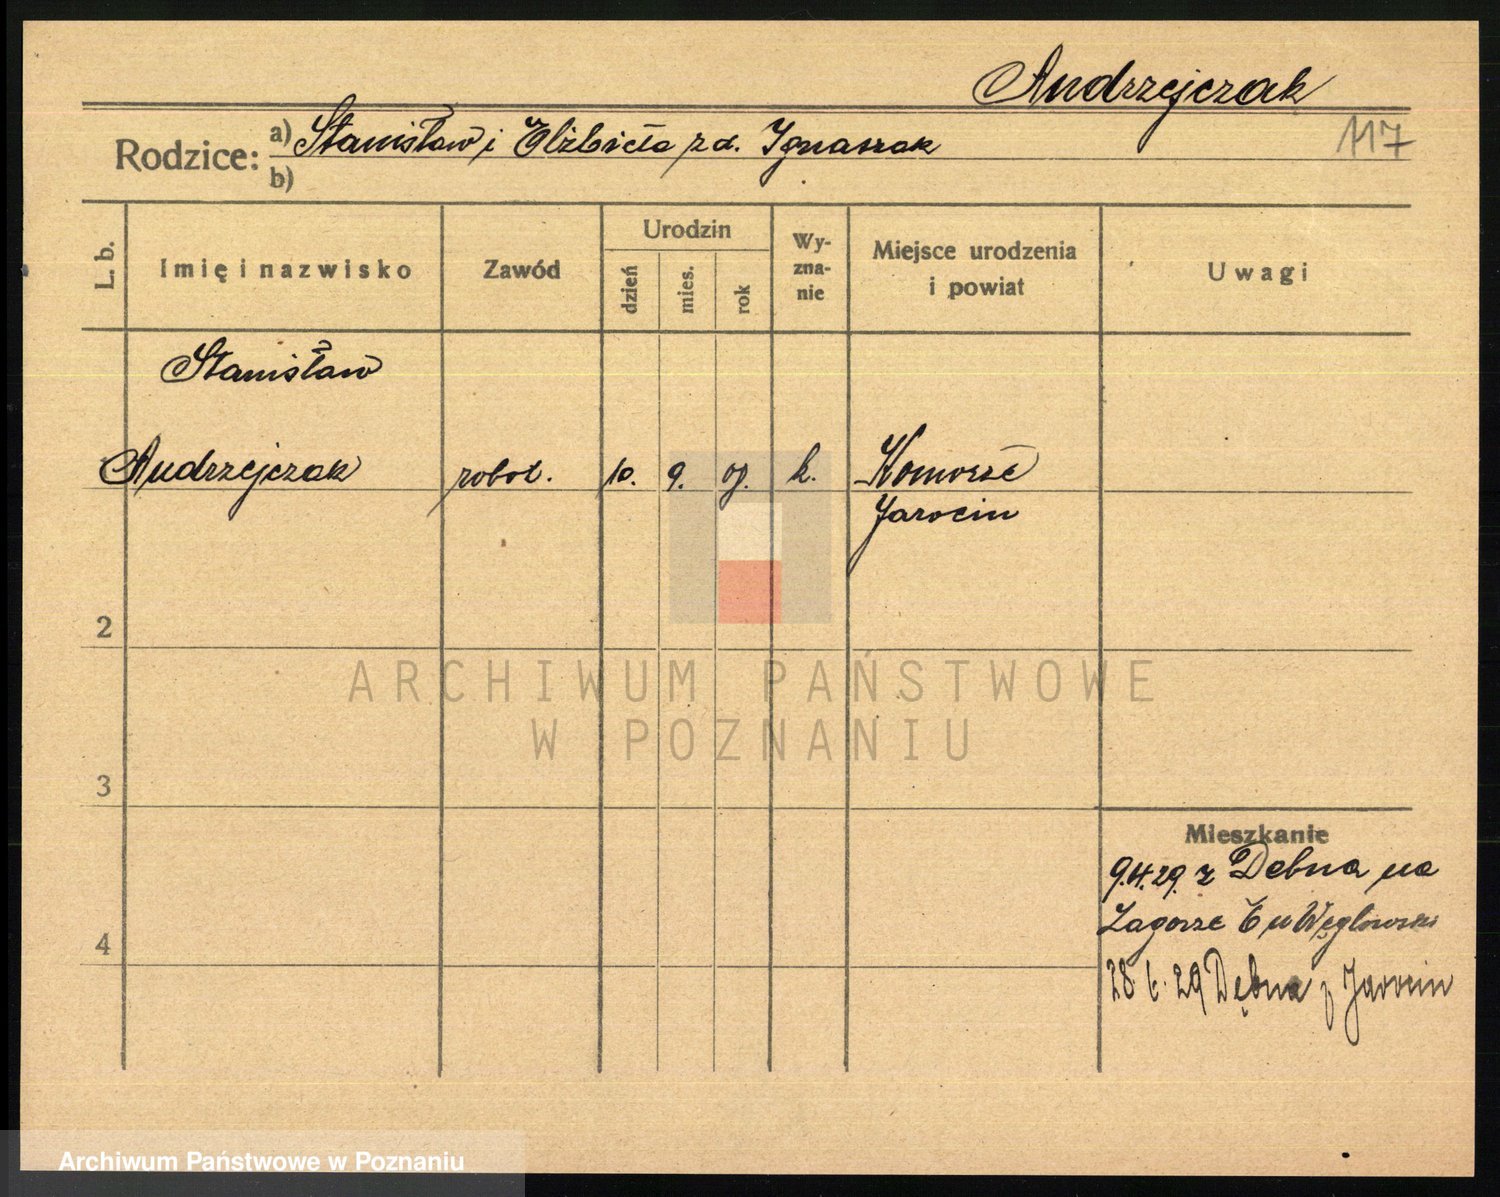 Andrzejczak
117
Rodzice: a) Stanisław i Elżbieta zd. Ignaszak
b)
L. b.
Imię i nazwisko
Zawód
Urodzin
dzień
mies.
rok
Wy-
zna-
nie
Miejsce urodzenia
i powiat
Uwagi
Stanisław
Andrzejczak robot. 10. 9. 07. k. Komorze
Jarocin
2
3
4
Mieszkanie
9.4.29. z Dębna na
Zagorze 6 u
28. 6. 29 Dębna p Jarocin
ARCHIWUM PAŃSTWOWE
W POZNANIU
Archiwum Państwowe w Poznaniu